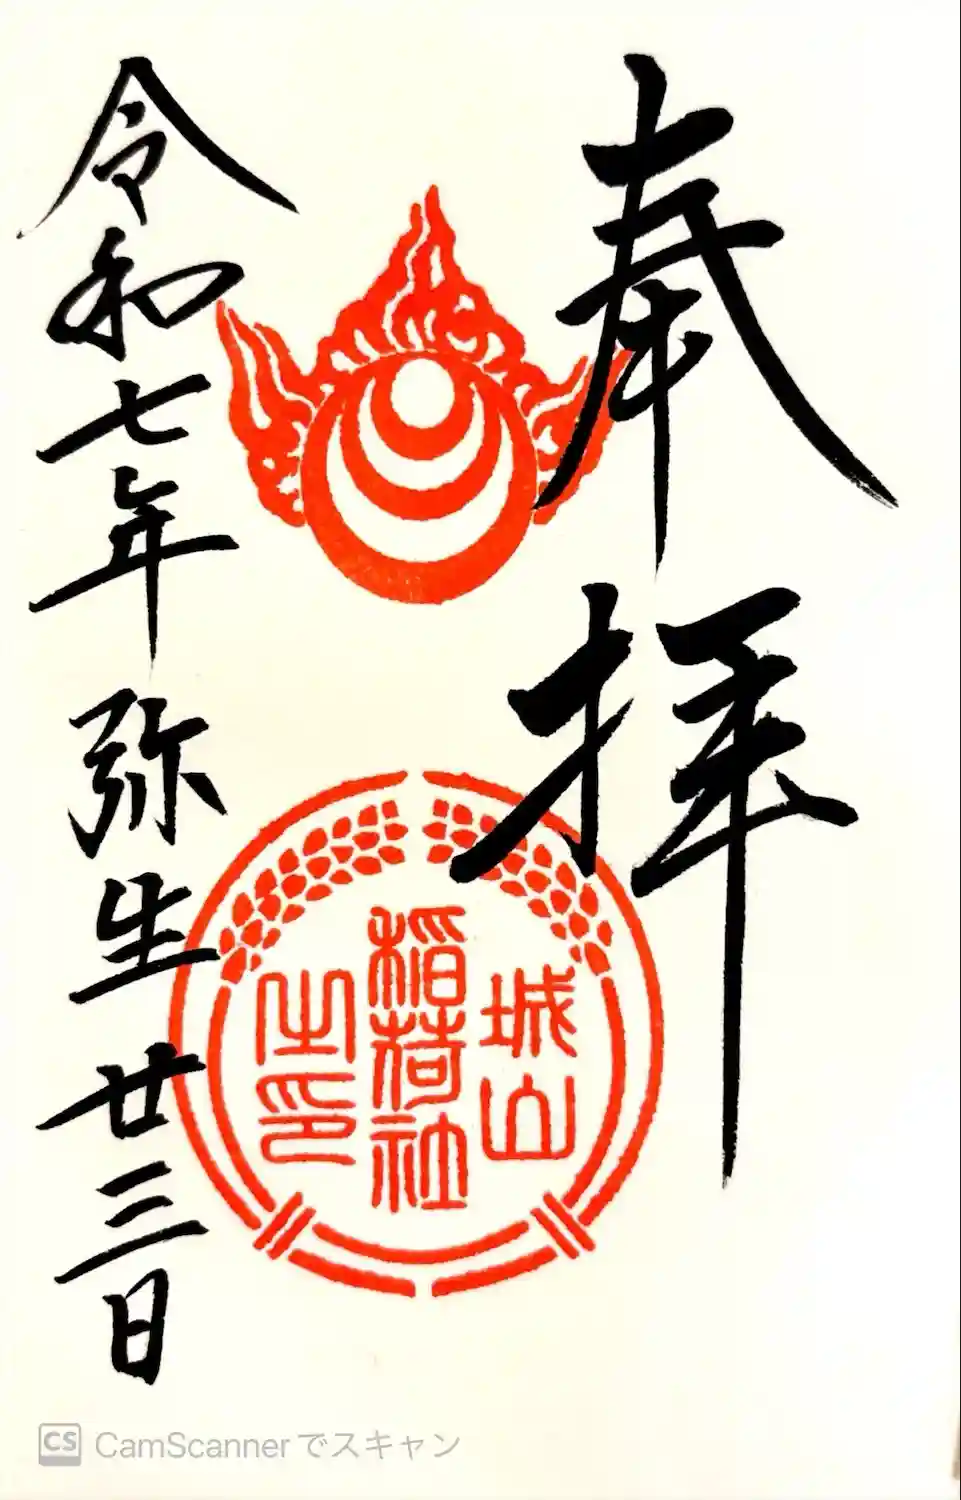 奉拝
城山
稲荷社
之印
令和七年 弥生 廿三日
CS CamScannerでスキャン